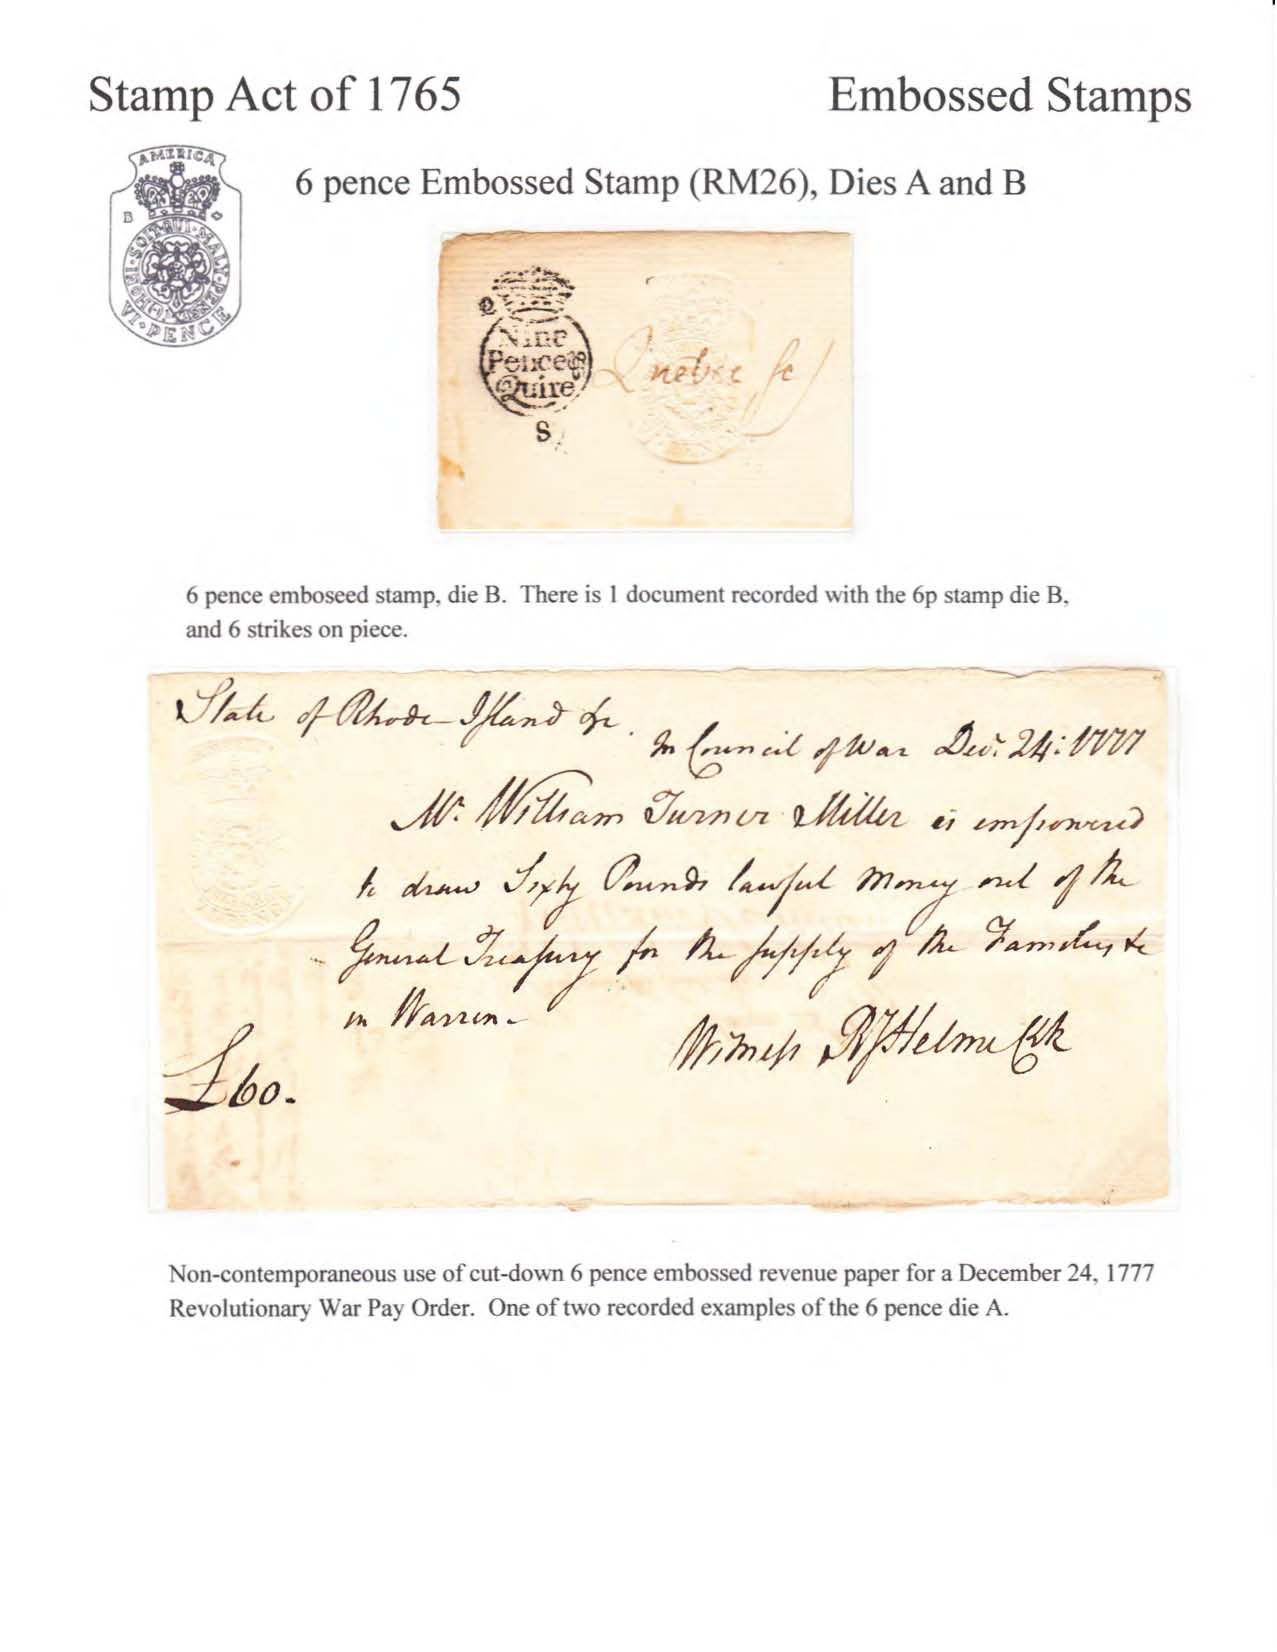 Stamp Act of 1765
Embossed Stamps
AMERICA
B
HONI·SOIT·QUI·MAL·Y·PENSE
VI·PENCE
6 pence Embossed Stamp (RM26), Dies A and B
Nine
Pence ⅌
Quire
S
Quebec sc
6 pence emboseed stamp, die B. There is 1 document recorded with the 6p stamp die B,
and 6 strikes on piece.
State of Rhode-Island &c.
In Council of War Decr. 24: 1777
Mr. William Turner Miller is empowered
to draw Sixty Pounds lawful Money out of the
General Treasury for the supply of the Families &c
in Warren-
Witness RJHelme Clk
£60.
Non-contemporaneous use of cut-down 6 pence embossed revenue paper for a December 24, 1777
Revolutionary War Pay Order. One of two recorded examples of the 6 pence die A.